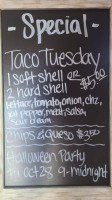 - Special -
Taco Tuesday
1 soft shell OR
2 hard shell $5.00
lettuce, tomato, onion, chz,
jal. pepper, meat, salsa,
sour cream
Chips & queso $3.50
Halloween Party
Fri Oct 28 9-midnight